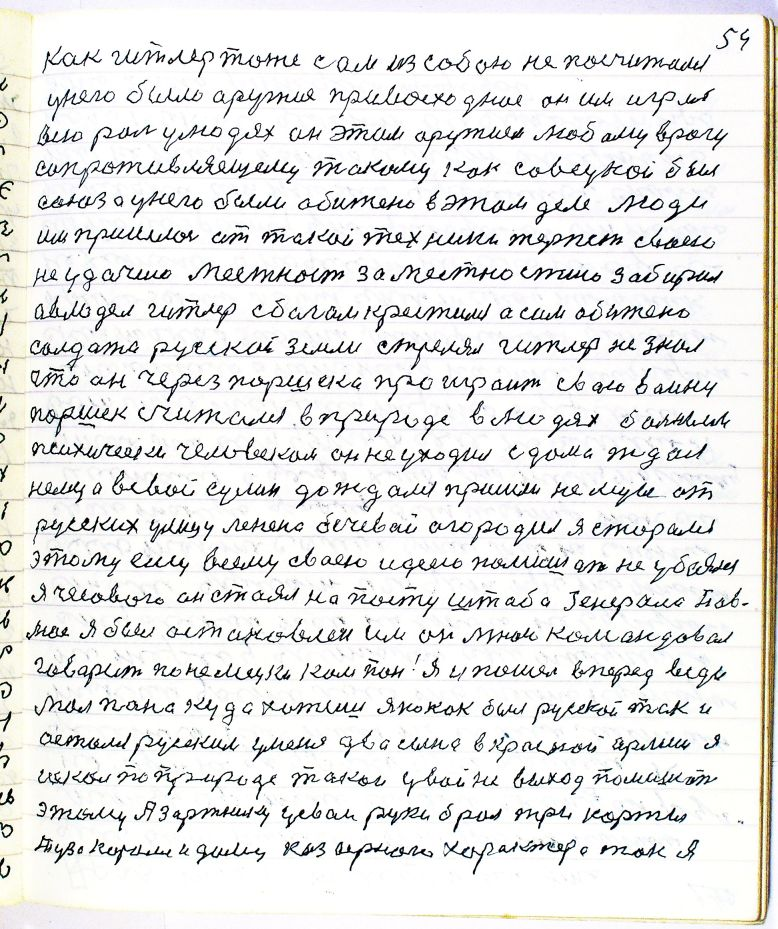 54
как гитлер тоже сам из собою не посчитался
унего было аружия привосходное он им играл
всю рол улюдях он этим аружием любому врогу
сапротивляющему такому как совецкой был
союз а унего были абижено в этом деле люди
им пришлось от такой техники терпет своею
неудачию местност заместностию забирал
авладел гитлер сбагам крестился а сам абижено
солдата русской земли стрелял гитлер не знал
что он через поршека проиграит сваю ваину
поршек считался в природе в людях бальным
психически человеком он не уходил с дома ждал
нему а вевой дождался пришли немцы от
русских улицу ленена бечевай агородил я старался
этому ему всему своею идеею помишат не убоялся
я чесового он стаял на посту штаба Генерала
я был астановлен им он мною командовал
говарит по немецки ком пон! Я и пошел вперед веди
мол пана куда хотиш я покок был русской так и
астался русским уменя два сына в красной армии я
искал по природе такои увойне выход помишат
этому Я зартнику усвои руки брал три карты
Туза короля и даму каз верного характера так я